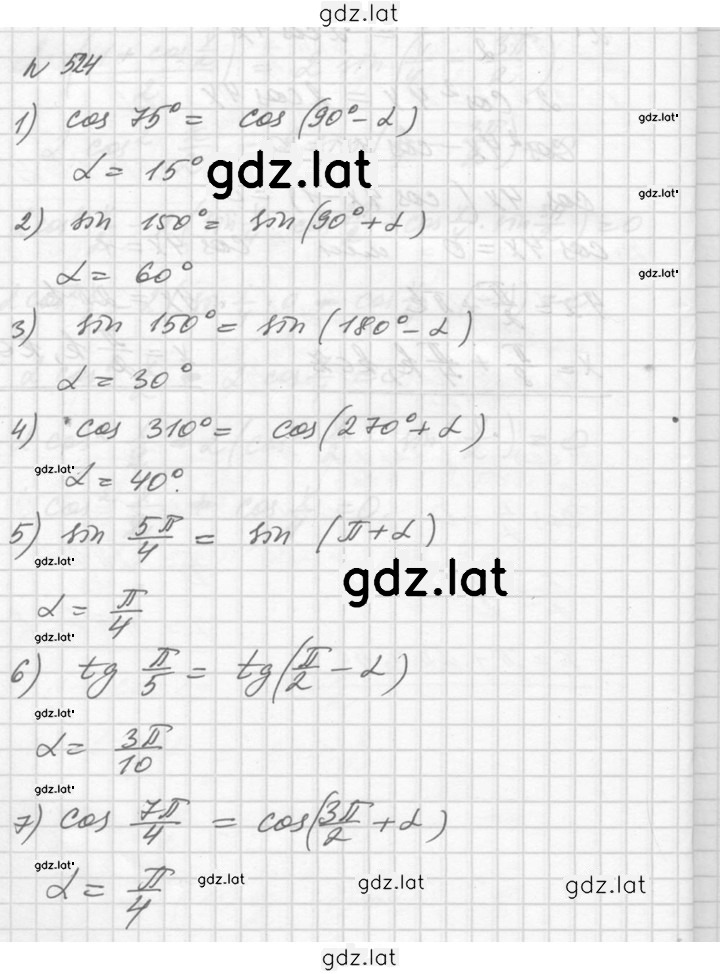 gdz.lat
N 524
1) cos 75° = cos(90° - α)
gdz.lat
α = 15°
gdz.lat
gdz.lat
2) sin 150° = sin(90° + α)
α = 60°
gdz.lat
3) sin 150° = sin(180° - α)
α = 30°
4) cos 310° = cos(270° + α)
gdz.lat
α = 40°.
5) sin 5π/4 = sin (π + α)
gdz.lat
gdz.lat
α = π/4
gdz.lat
6) tg π/5 = tg(π/2 - α)
gdz.lat
α = 3π/10
gdz.lat
7) cos 7π/4 = cos(3π/2 + α)
gdz.lat
α = π/4
gdz.lat gdz.lat gdz.lat
gdz.lat